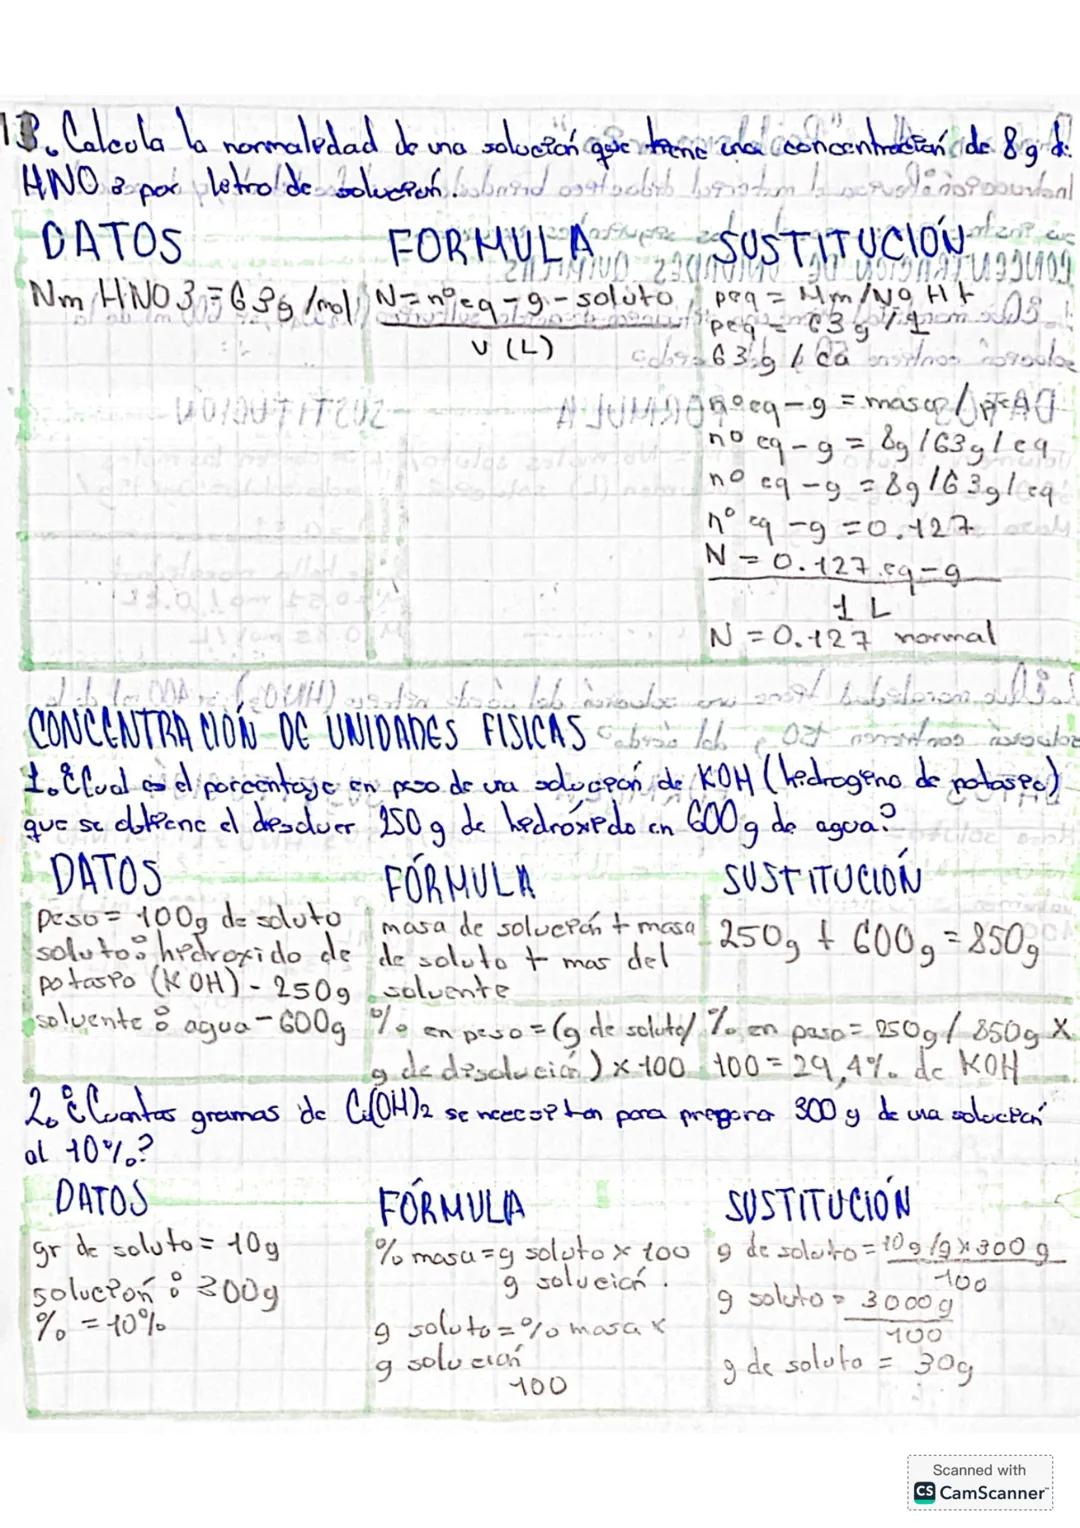 13. Calcula la normalidad de una solución que tiene una concentración de 8 g de
HNO3 por litro de solución.
DATOS FORMULA SUSTITUCIÓN
Nm HNO3 = 63g/mol N = nº eq - g - soluto peq = Mm/Nº H+
v (L) peq = 63g/1
63g/eq
nº eq - g = masa/peq
nº eq - g = 8g/63g/eq
nº eq - g = 8g/63g/eq
nº eq - g = 0.127
N = 0.127 eq - g
1 L
N = 0.127 normal
CONCENTRACIÓN DE UNIDADES FISICAS
1. ¿Cual es el porcentaje en peso de una solución de KOH (hidrogeno de potasio)
que se obtiene el disolver 250 g de hidróxido en 600 g de agua?
DATOS FÓRMULA SUSTITUCIÓN
peso = 100g de soluto masa de solución + masa 250g + 600g = 850g
soluto: hidroxido de de soluto + mas del
potasio (KOH) - 250g solvente
solvente: agua - 600g % en peso = (g de soluto/ % en peso = 250g / 850g x
g de disolución) x 100 100 = 29,4% de KOH
2. ¿Cuantos gramas de Ca(OH)2 se necesitan para preparar 300 g de una solución
al 10%?
DATOS FÓRMULA SUSTITUCIÓN
gr de soluto = 10g % masa = g soluto x 100 g de soluto = 10g/g x 300 g
solución: 300g g solución. 100
% = 10% g soluto = % masa x g soluto = 3000g
g solución 100
100 g de soluto = 30g
Scanned with
CS CamScanner